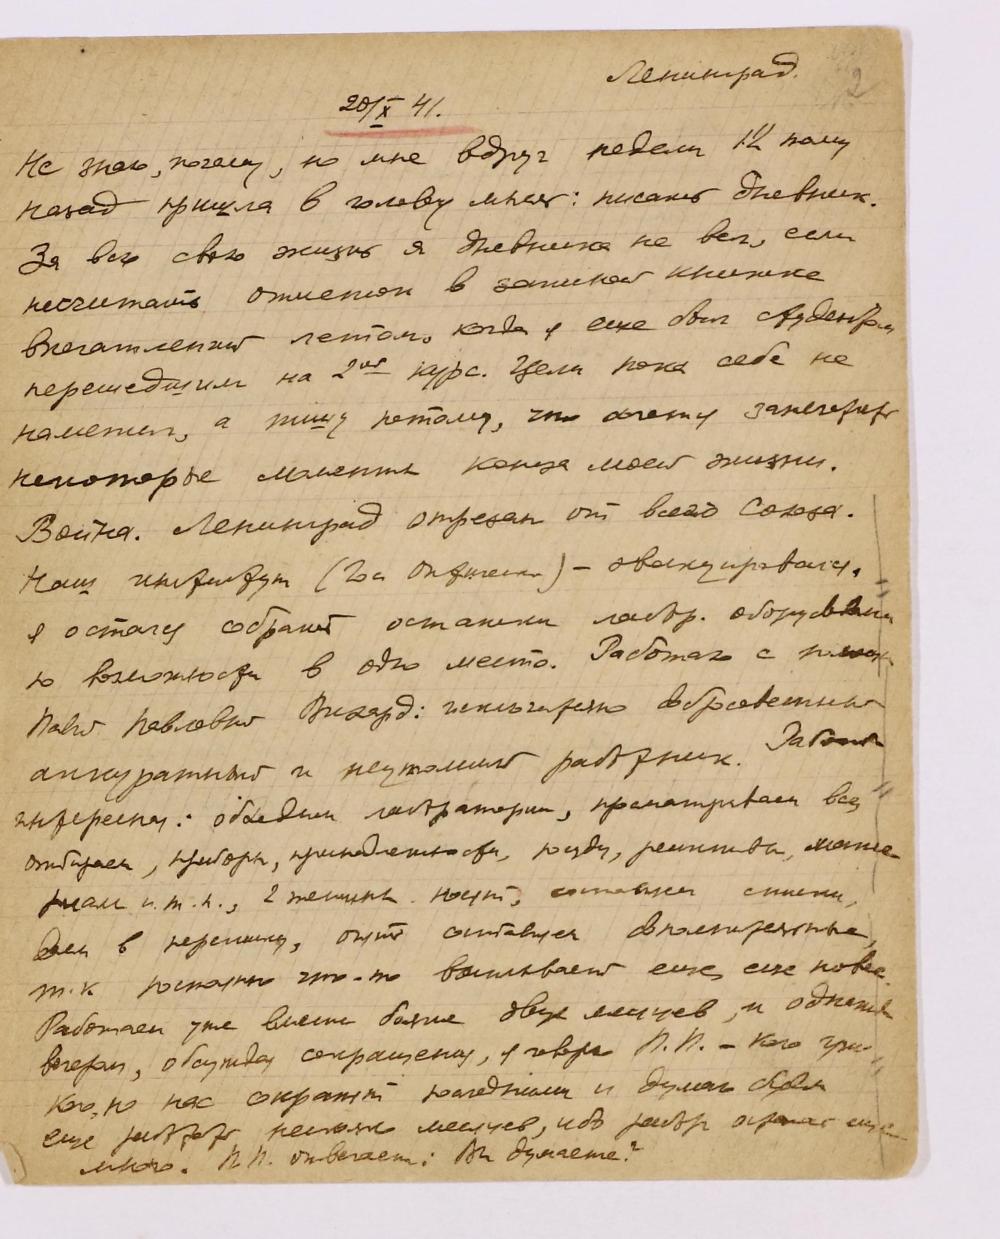 Ленинград.
2
20/X 41.
Не знаю, почему, но мне вдруг недели 1½ тому
назад пришла в голову мысль: писать дневник.
За всю свою жизнь я дневника не вел, если
несчитать отметок в записной книжке
впечатлений летом, когда я еще был студентом
перешедшим на 2ой курс. Цели пока себе не
наметил, а пишу потому, что хочу запечатлеть
некоторые моменты конца моей жизни.
Война. Ленинград отрезан от всего Союза.
Наш институт – эвакуировался,
я остался собрать остатки лабор. оборудования
по возможности в одно место. Работаю с
Павл Павлович исключительно добросовестный
аккуратный и неутомимый работник. Работа
интересная: обходим лаборатории, просматриваем все,
отбираем, приборы, принадлежности, посуду, реактивы, мате
риалы и.т.п., 2 женщины носят, составляем списки,
даем в переписку, опять составляем дополнительные,
т.к постоянно что-то всплывает еще, еще новое.
Работаем уже вместе более двух месяцев, и однажды
вечером, обсуждая сокращения, я говорю П.П. –
кого, но нас сократят последними и думаю будем
еще работать несколько месяцев, ибо работ еще
много. П.П. отвечает: Вы думаете?